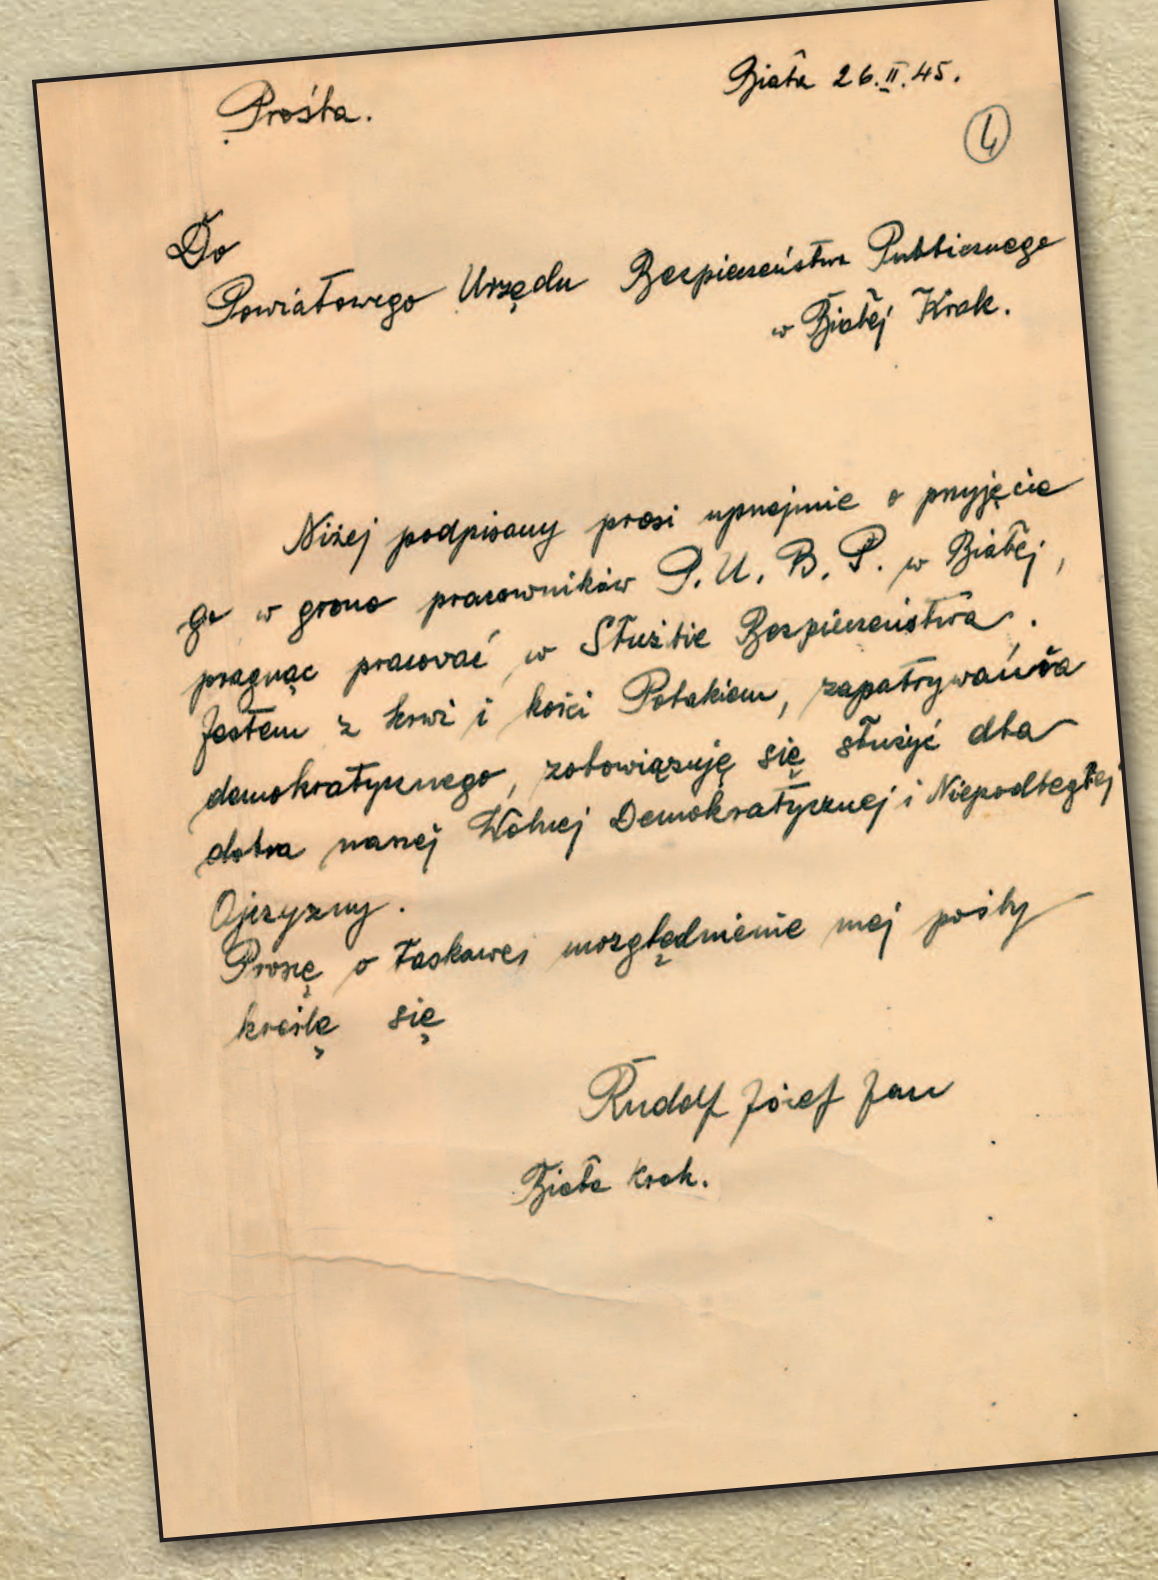 Biała 26.II.45.
Prośba.
4
Do
Powiatowego Urzędu Bezpieczeństwa Publicznego
w Białej Krak.
Niżej podpisany prosi uprzejmie o przyjęcie
go w grono pracowników P.U.B.P. w Białej,
pragnąc pracować w Służbie Bezpieczeństwa.
Jestem z krwi i kości Polakiem, zapatrywania
demokratycznego, zobowiązuję się służyć dla
dobra naszej Wolnej Demokratycznej i Niepodległej
Ojczyzny.
Proszę o łaskawe, uwzględnienie mej prośby
kreślę się
Rudolf Józef Jan
Biała Krak.